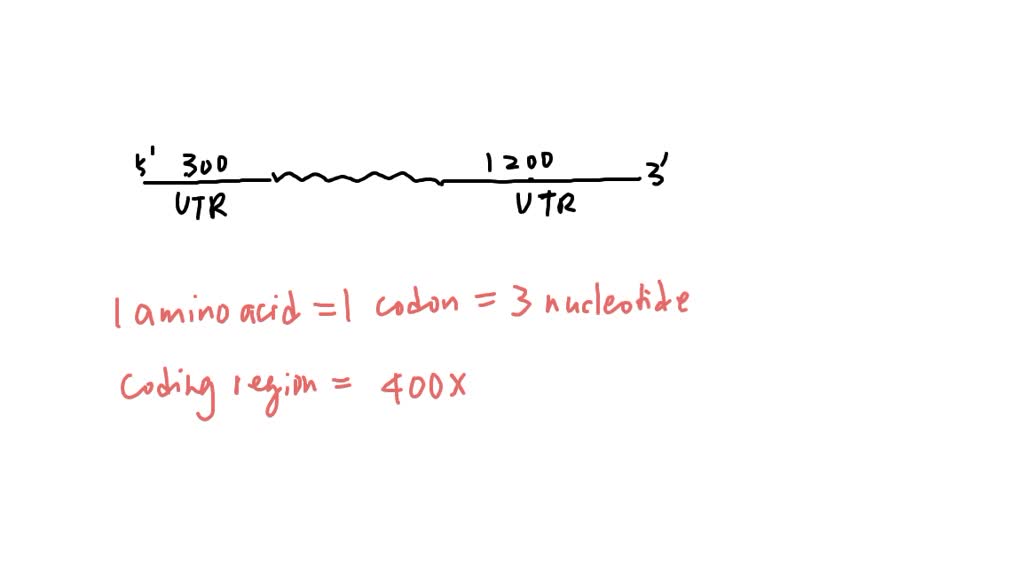 5' 300 1200 3'
UTR UTR
1 amino acid = 1 codon = 3 nucleotide
coding region = 400x